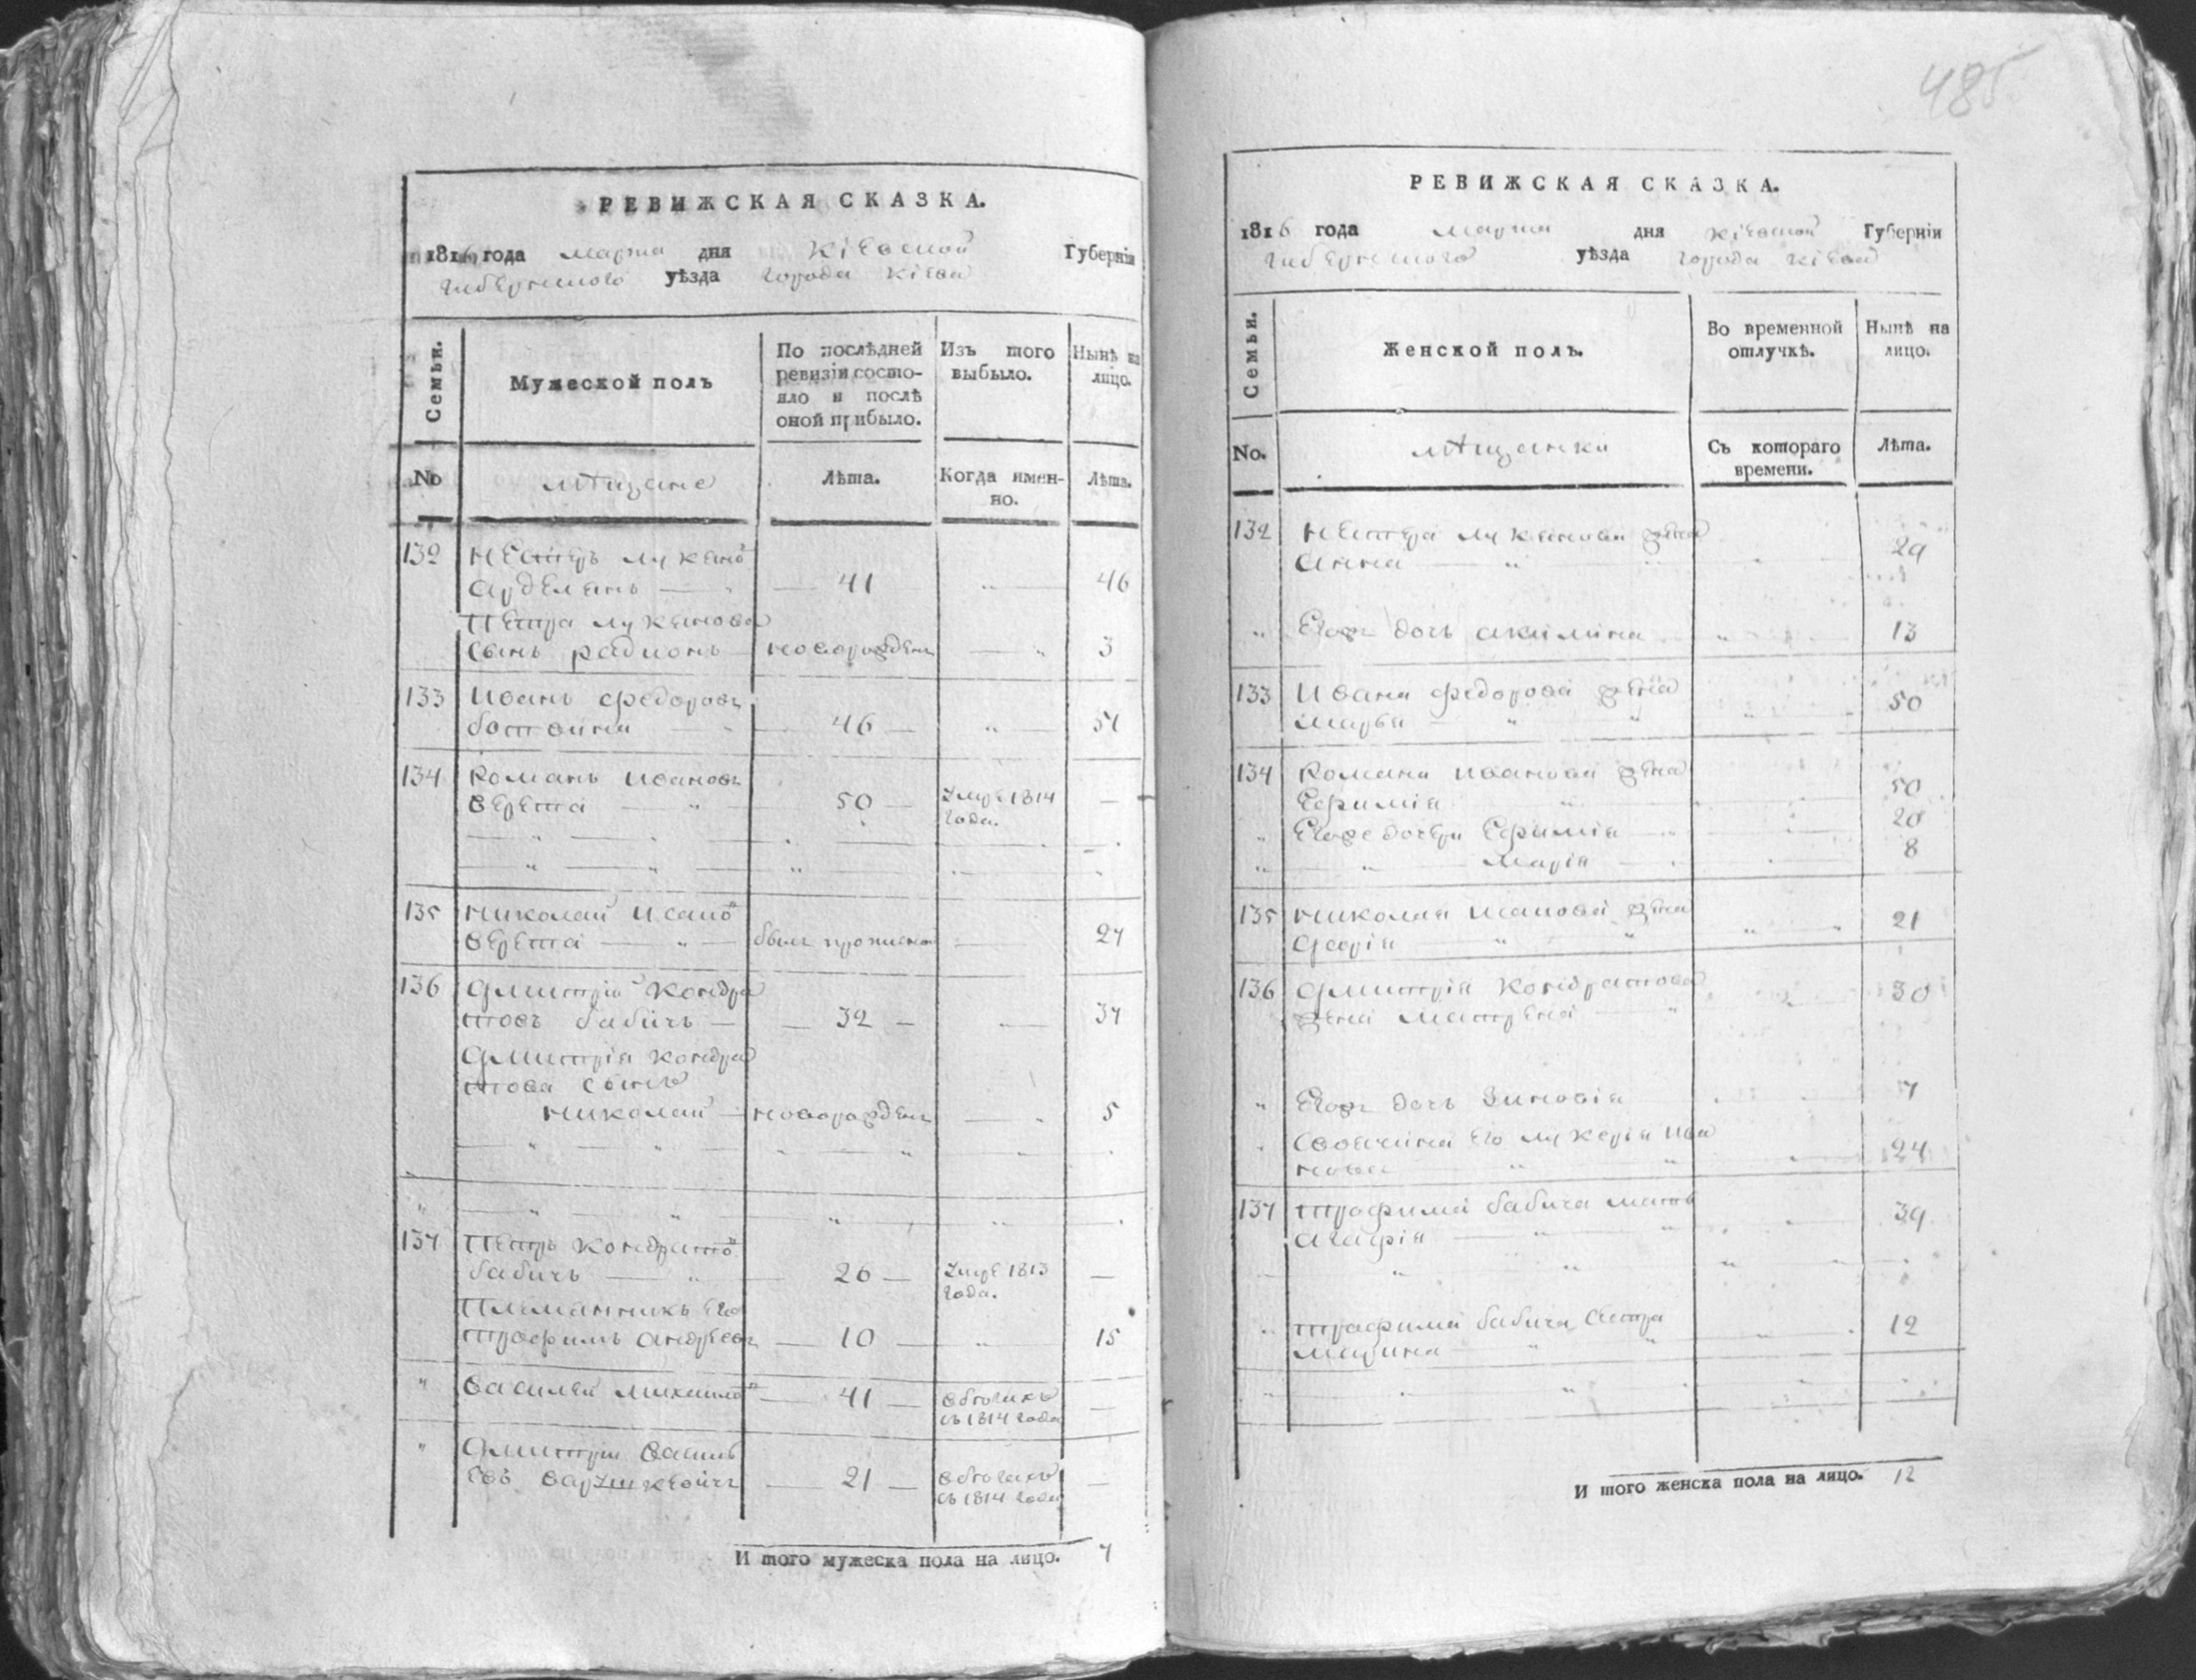 РЕВИЖСКАЯ СКАЗКА.
1816 года марта дня Кіевской Губерніи
губернского уѣзда города Кіева
Семьи.
Мужеской полъ
По послѣдней ревизіи состо-
яло и послѣ
оной прибыло.
Изъ того
выбыло.
Нынѣ на
лицо.
No
мѣщане
Лѣта.
Когда имен-
но.
Лѣта.
132 Нестеръ Лукянов
Арделянъ — 41 — 46
Петра Лукянова
сынъ Радионъ новорожденъ — 3
133 Иванъ Федоровъ
— 46 — 51
134 Романъ Ивановъ
Верета — 50 — умре 1814
года. —
135 Николай Исапов
Верета — былъ прописной — 27
136 Дмитрій Кондра
товъ Бабичъ — 32 — 37
Дмитрія Кондра
това сынъ
Николай — новорожденъ — 5
137 Петръ Кондратов
Бабичъ — 26 — умре 1813
года. —
Племянникъ его
Трофимъ Андреевъ — 10 — 15
" Василей Михаилов — 41 —
съ 1814 года —
" Дмитрий Василь
евъ — 21 —
съ 1814 года —
И того мужеска пола на лицо. 7
485
РЕВИЖСКАЯ СКАЗКА.
1816 года марта дня Кіевской Губерніи
губернского уѣзда города Кіева
Семьи.
Женской полъ.
Во временной
отлучкѣ.
Нынѣ на
лицо.
No.
мѣщанки
Съ котораго
времени.
Лѣта.
132 Нестера Лукянова жена
Анна — 29
" Егожъ дочь Акилина — 13
133 Ивана Федорова жена
Марья — 50
134 Романа Иванова жена
Ефимія — 50
" Егоже дочери Ефимія — 20
" — Марія — 8
135 Николая Исапова жена
Дарія — 21
136 Дмитрія Кондратова
жена Матрена — 30
" Егожъ дочь Зиновія — 7
" Своячина его Лукерія Ива
нова — 24
137 Трофима Бабича мать
Агафія — 39
" Трофима Бабича сестра
Марина — 12
И того женска пола на лицо. 12